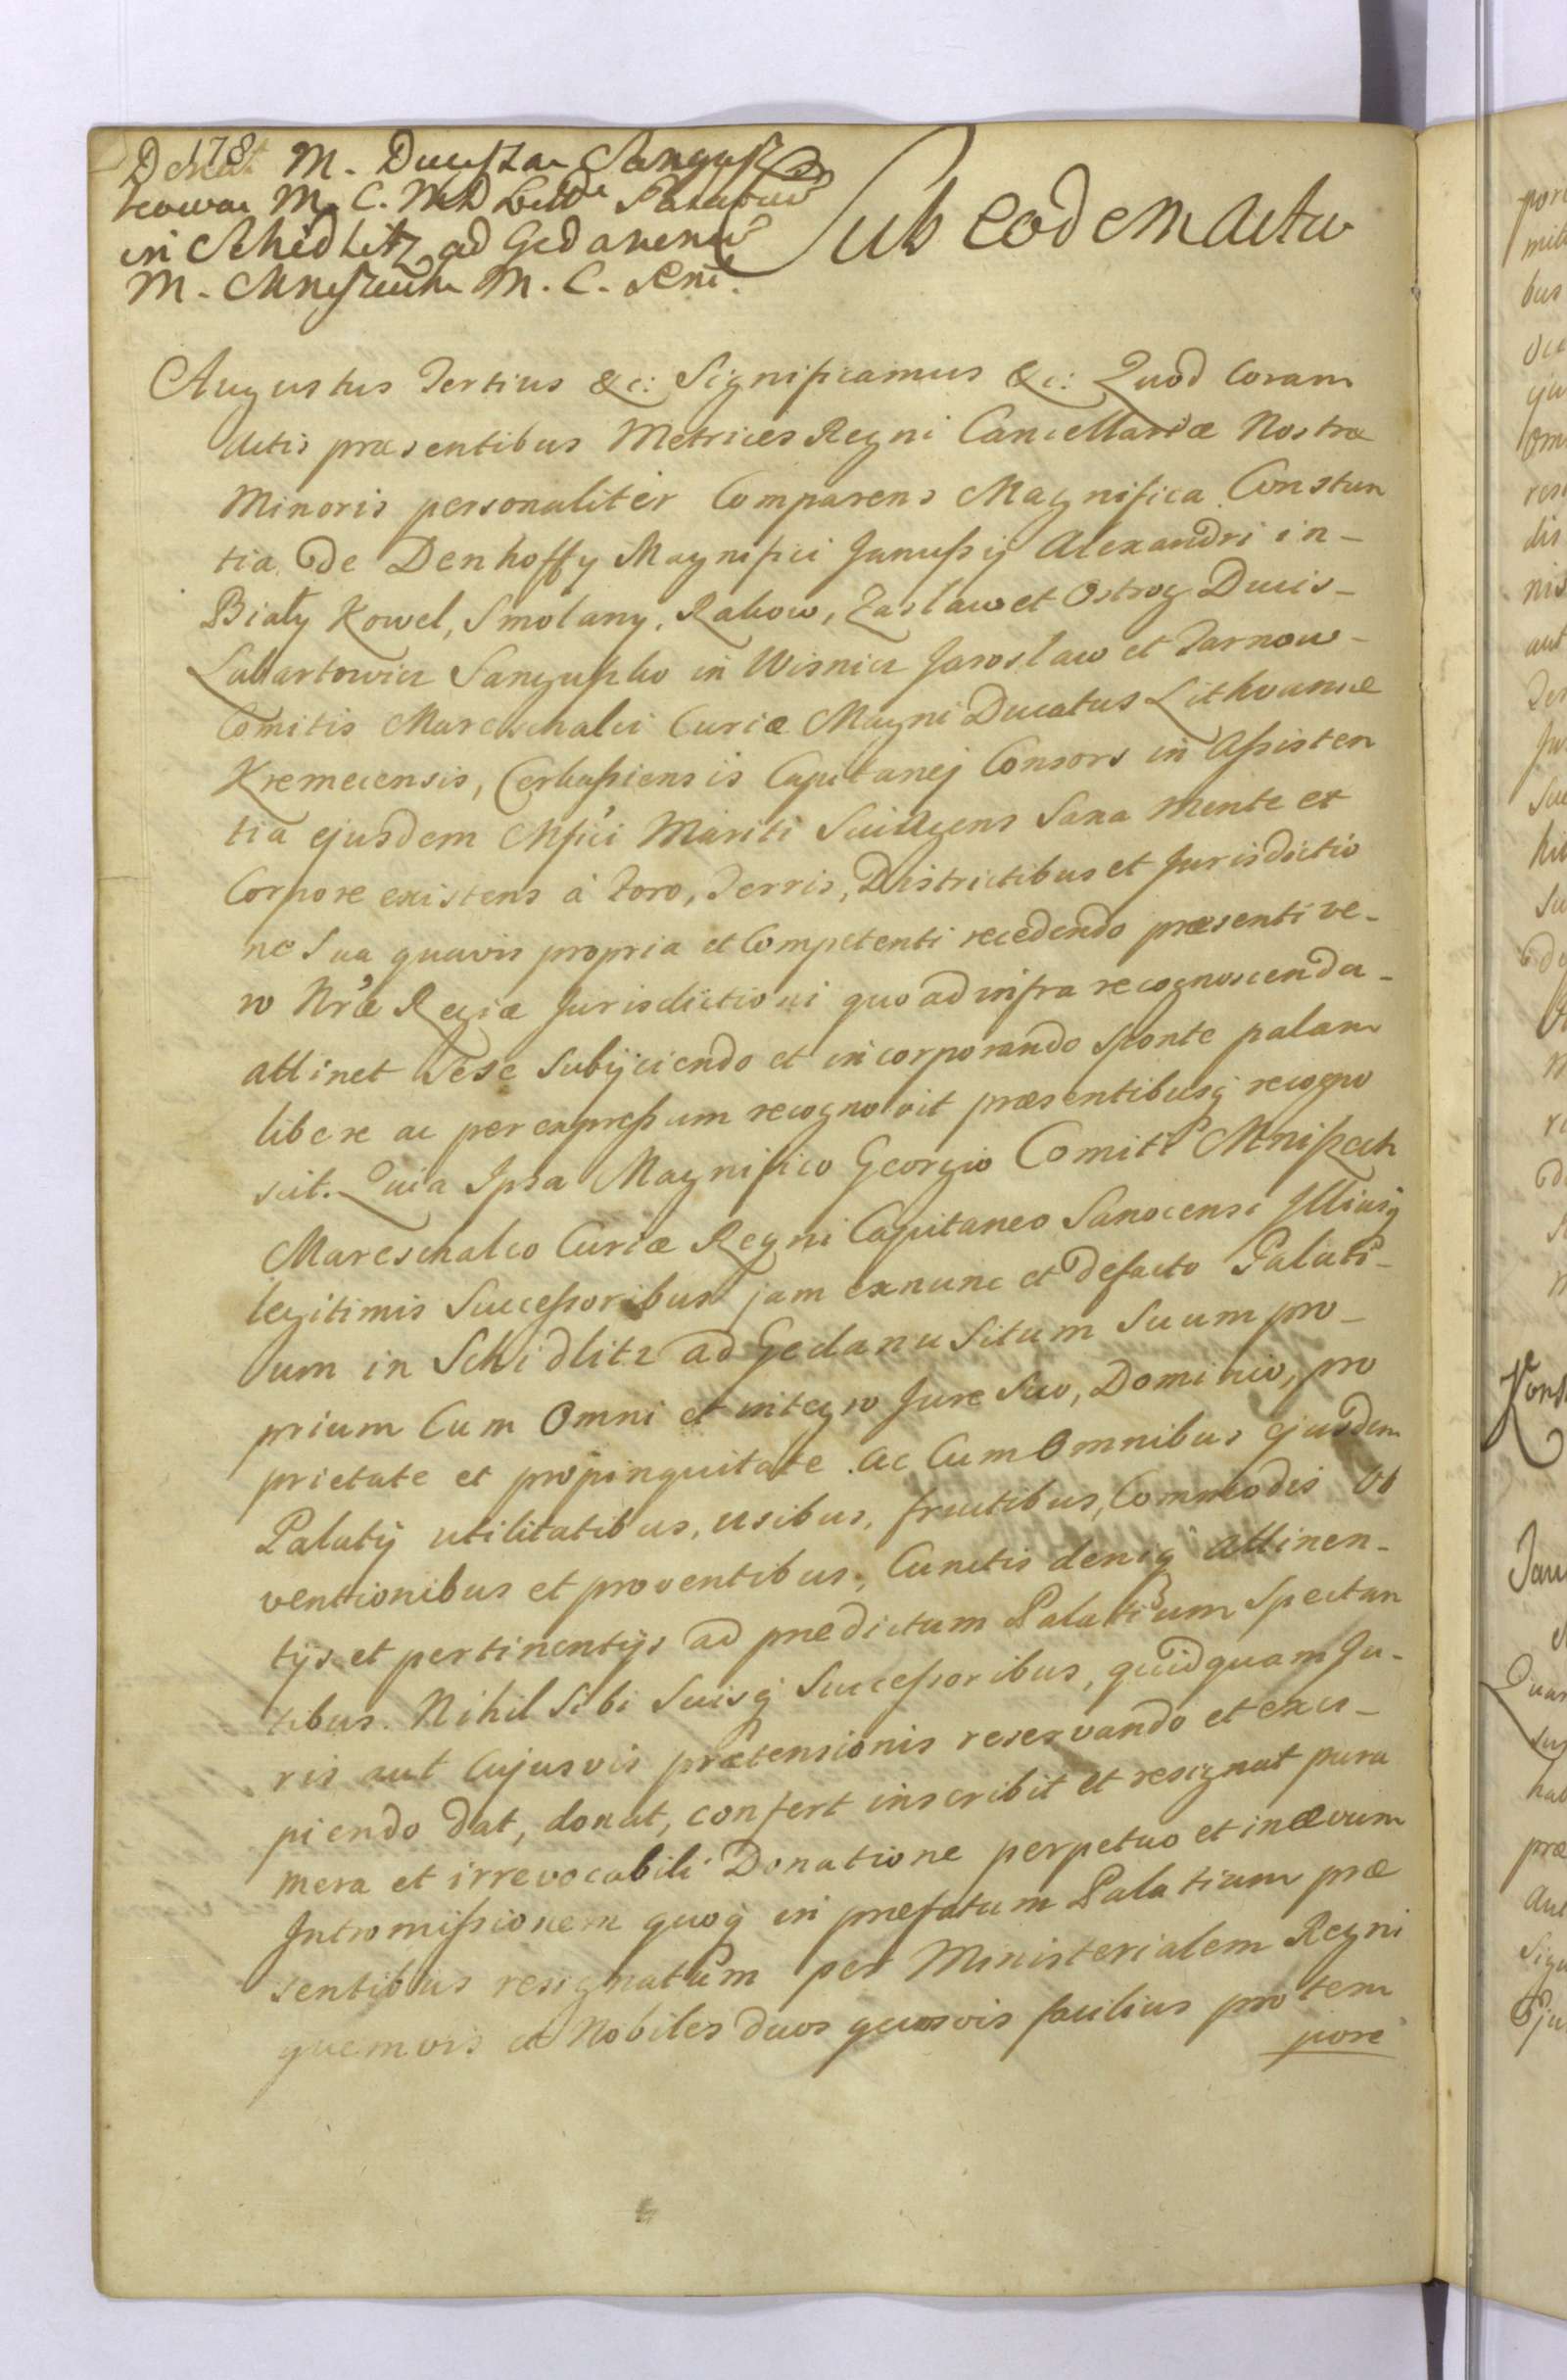 178
Donat M. Ducissa Sangusz
kowa M. C. M. D. Litt. Palatiũ
in Schedlitz ad Gedanenũ
M. Mniszech M. C. Rni.
Sub eodem actu
Augustus Tertius &c: Significamus &c: Quod Coram
Actis præsentibus Metrices Regni Cancellariæ Nostræ
Minoris personaliter Comparens Magnifica Constan
tia de Denhoffy Magnifici Janußij Alexandri in-
Biały Kowel, Smolany, Rakow, Zaslaw et Ostrog Ducis-
Lubartowicz Sanguszko in Wisnicz Jaroslaw et Tarnow-
Comitis Mareschalci Curiæ Magni Ducatus Lithvaniæ
Kremecensis, Cerkaßiensis Capitanej Consors in Aßisten
tia ejusdem Mfici Mariti Sui Agens Sana mente et
Corpore existens à Foro, Terris, Districtibus et Jurisdictio
ne Sua quavis propria et Competenti recedendo præsenti ve-
ro Nræ Regiæ Jurisdictioni quo ad infra recognoscenda-
attinet Sese Subijciendo et incorporando Sponte palam
libere ac per expreßum recognovit præsentibusq recogno
scit. Quia Ipsa Magnifico Georgio Comiti Mniszech
Mareschalco Curiæ Regni Capitaneo Sanocensi Illiusq
legitimis Succeßoribus jam exnunc et defacto Palati-
um in Schidlitz ad Gedanũ Situm Suum pro-
prium Cum Omni et integro Jure Suo, Dominio, pro
prietate et propinquitate ac Cum Omnibus ejusdem
Palatij utilitatibus, usibus, fructibus, Commodis Ob
ventionibus et proventibus, Cunctis deniq attinen-
tijs et pertinentijs ad prædictum Palatium Spectan
tibus. Nihil Sibi Suisq Succeßoribus, quidquam Ju-
ris aut Cujusvis prætensionis reservando et exci-
piendo dat, donat, confert inscribit et resignat pura
mera et irrevocabili Donatione perpetuo et in ævum
Intromißionem quoq in præfatum Palatium præ
sentibus resignatum per Ministerialem Regni
quemvis et Nobiles duos quosvis facilius pro tem
pore